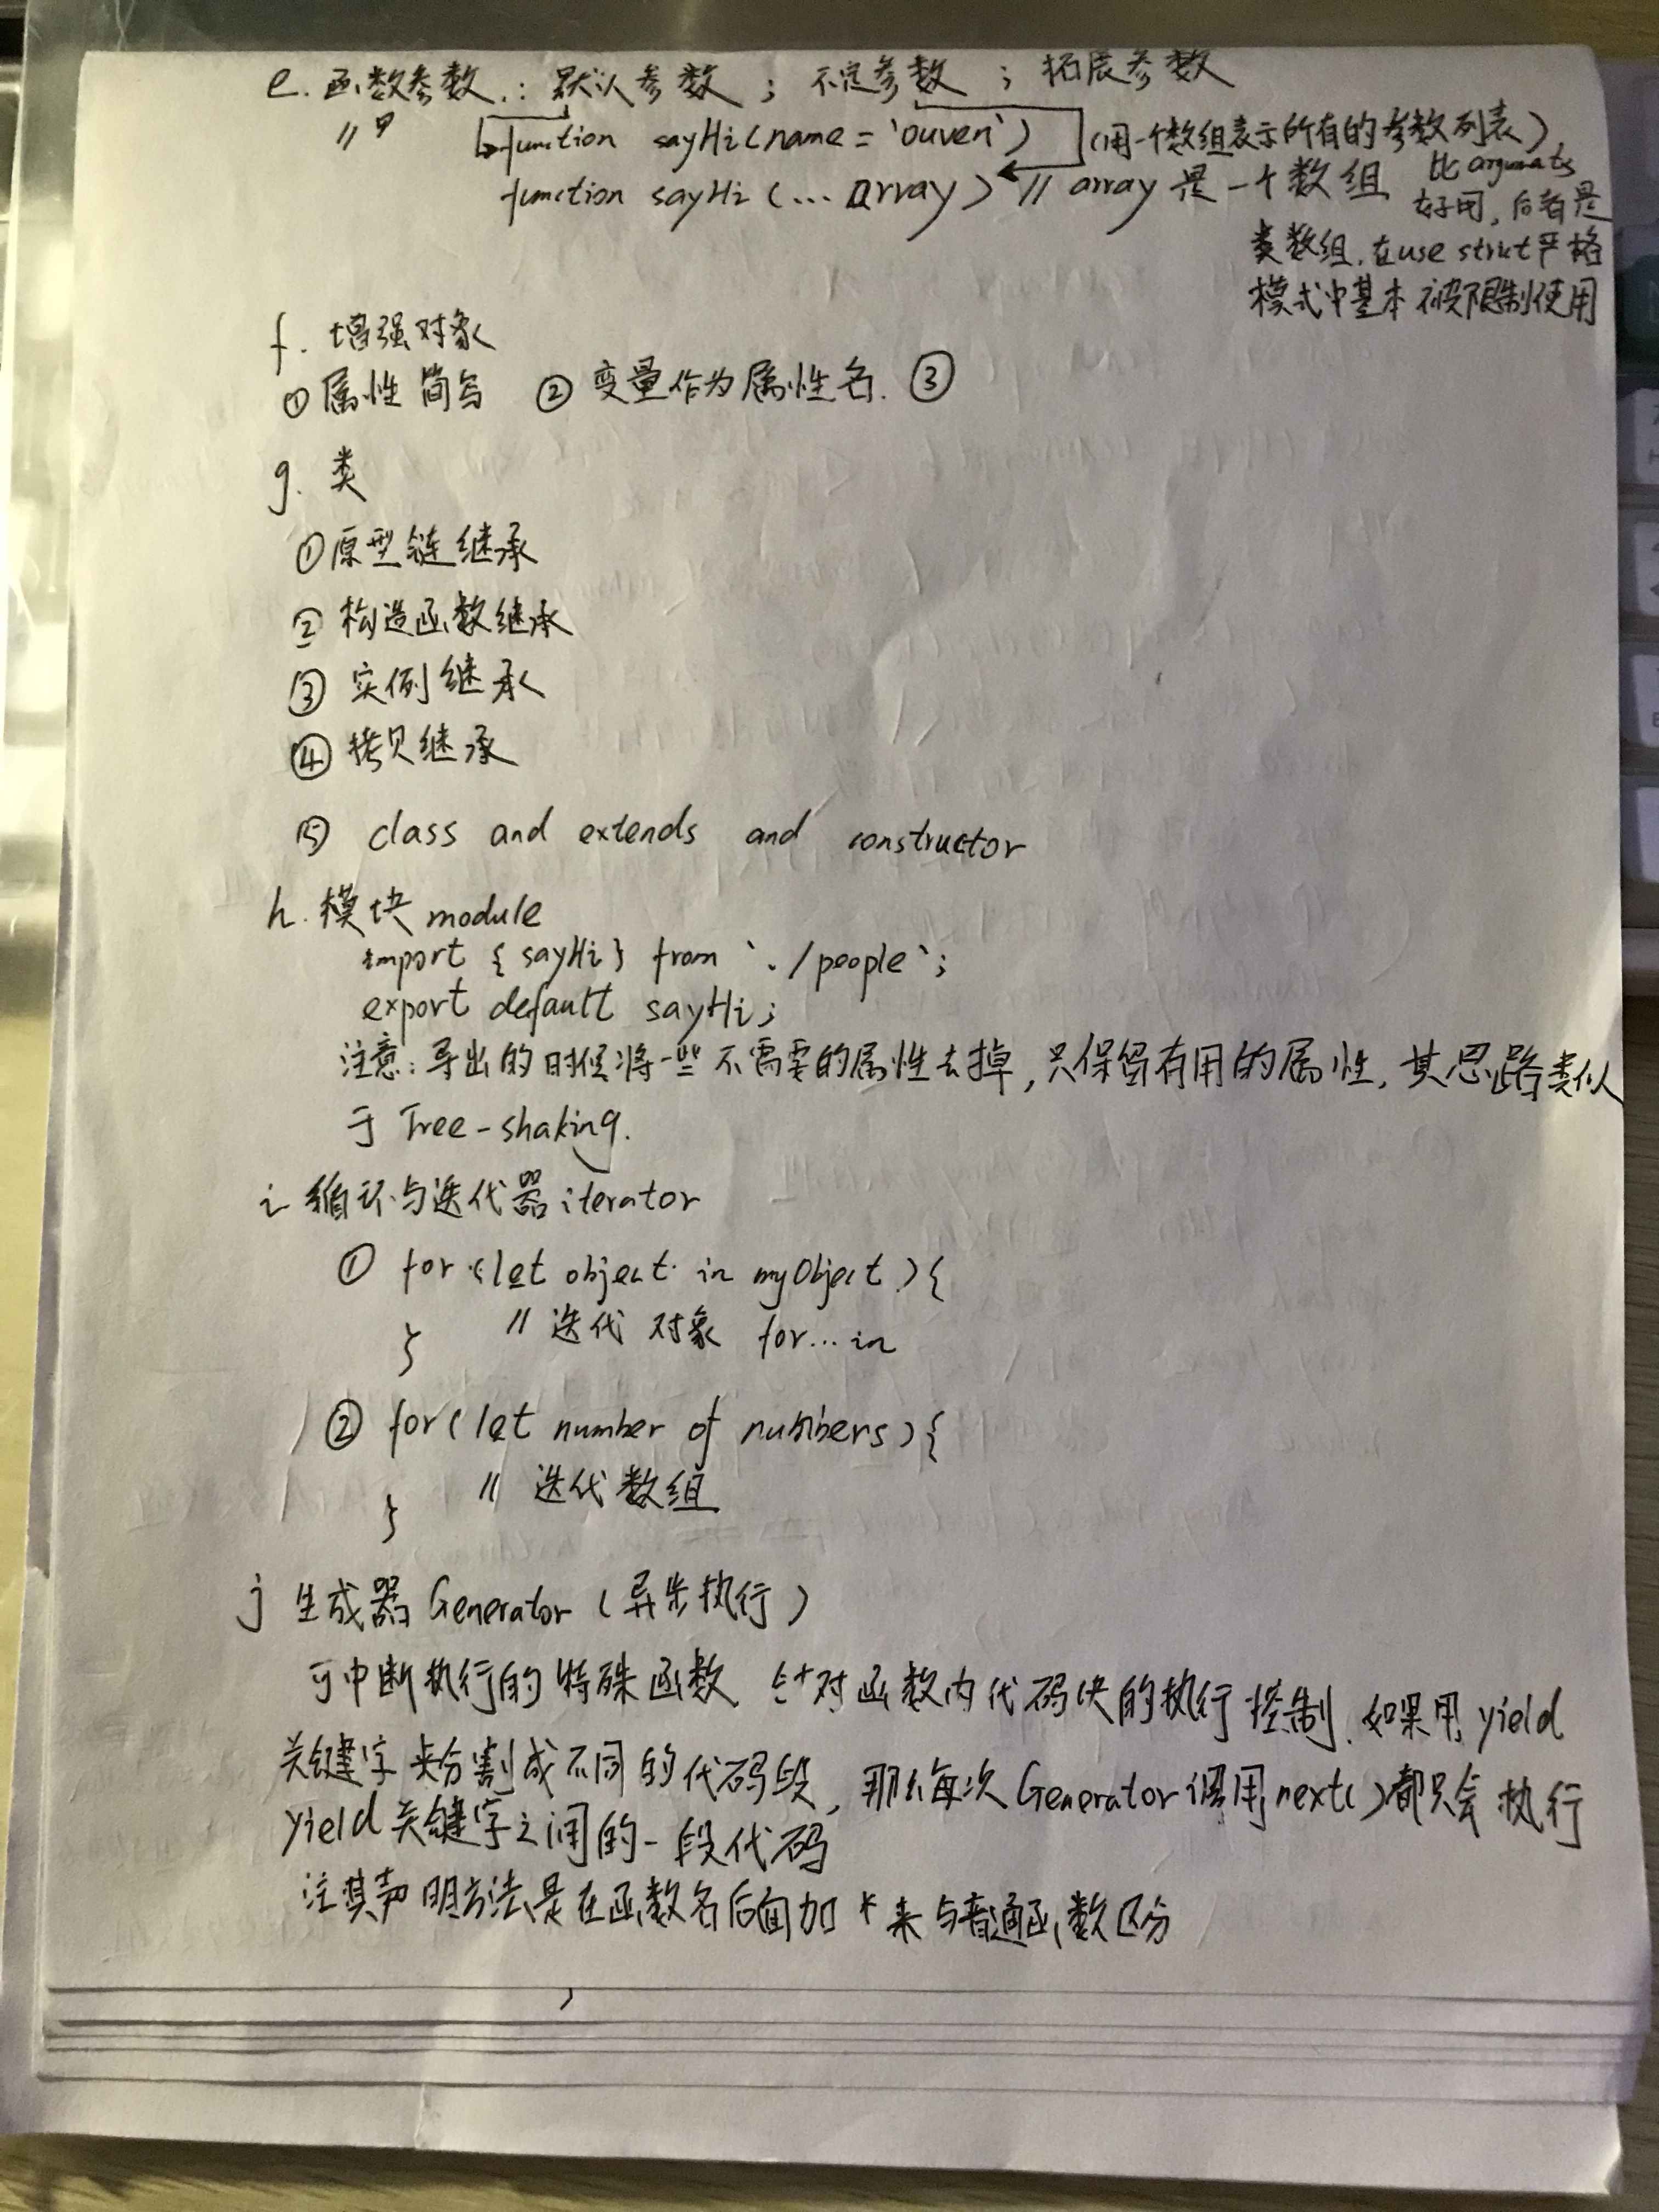 e. 函数参数: 默认参数 ; 不定参数 ; 拓展参数
function sayHi(name = `ouven`) (用一个数组表示所有的参数列表)
function sayHi (... array) // array 是一个数组 比 arguments
好用, 后者是
类数组, 在use strict严格
模式中基本被限制使用
f. 增强对象
① 属性简写 ② 变量作为属性名. ③
g. 类
① 原型链继承
② 构造函数继承
③ 实例继承
④ 拷贝继承
⑤ class and extends and constructor
h. 模块 module
import { sayHi } from `./people`;
export default sayHi;
注意: 导出的时候将一些不需要的属性去掉, 只保留有用的属性, 其思路类似
于 Tree-shaking.
i 循环与迭代器 iterator
① for (let object in myObject) {
// 迭代 对象 for...in
}
② for (let number of numbers) {
// 迭代数组
}
j 生成器 Generator (异步执行)
可中断执行的特殊函数、针对函数内代码块的执行控制. 如果用 yield
关键字来分割成不同的代码段, 那么每次 Generator 调用 next() 都只会执行
yield 关键字之间的一段代码
注其声明方法是在函数名后面加 * 来与普通函数区分